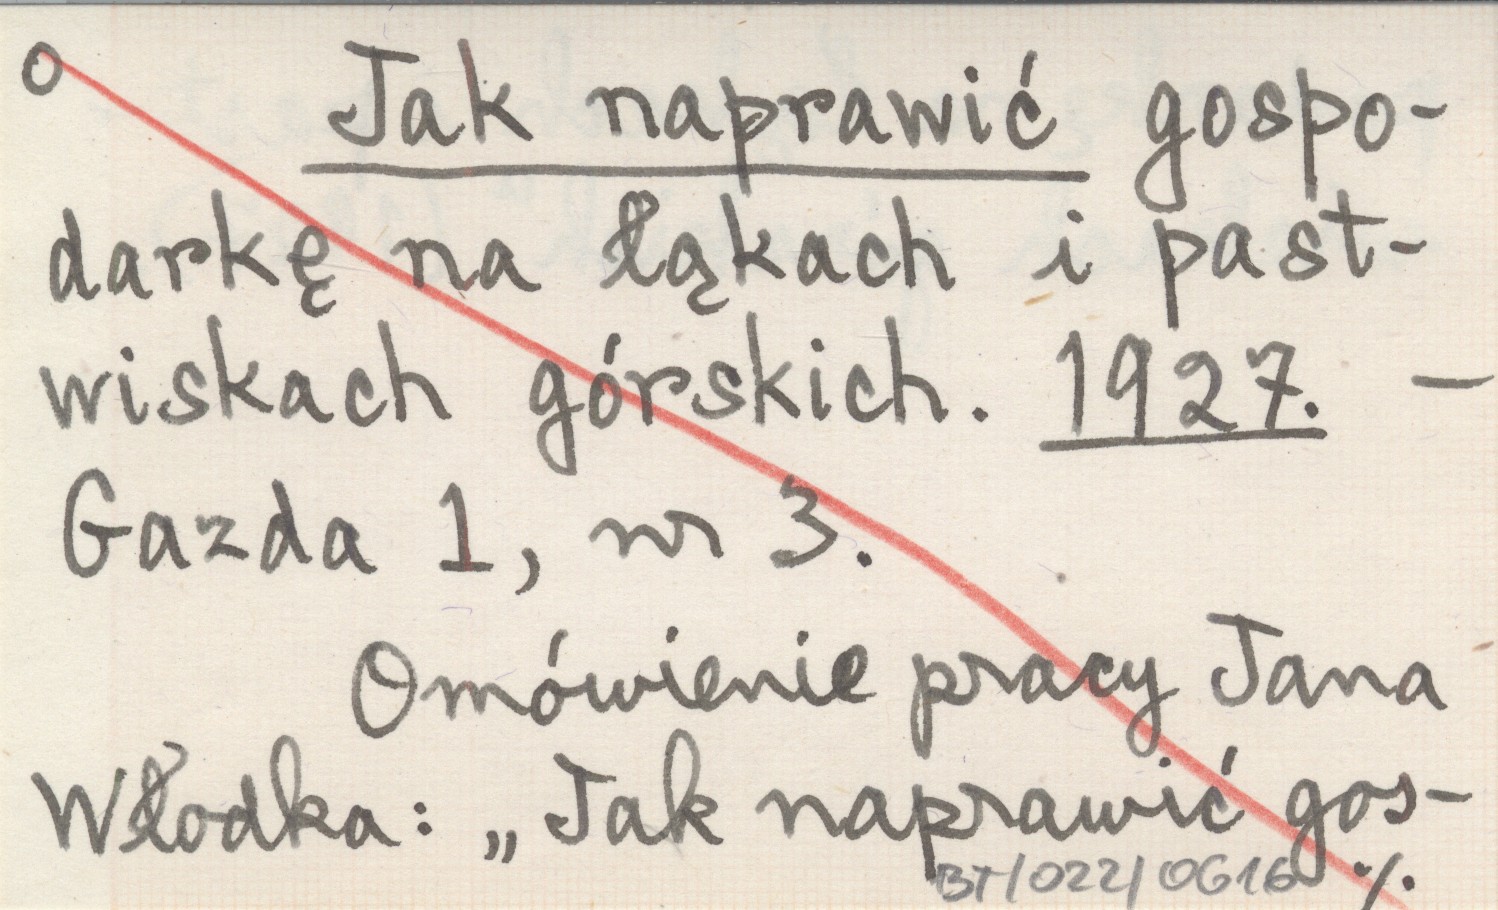 o Jak naprawić gospo-
darkę na łąkach i past-
wiskach górskich. 1927. —
Gazda 1, nr 3.
Omówienie pracy Jana
Włodka: „Jak naprawić gos-
BT/022/0616 ./.